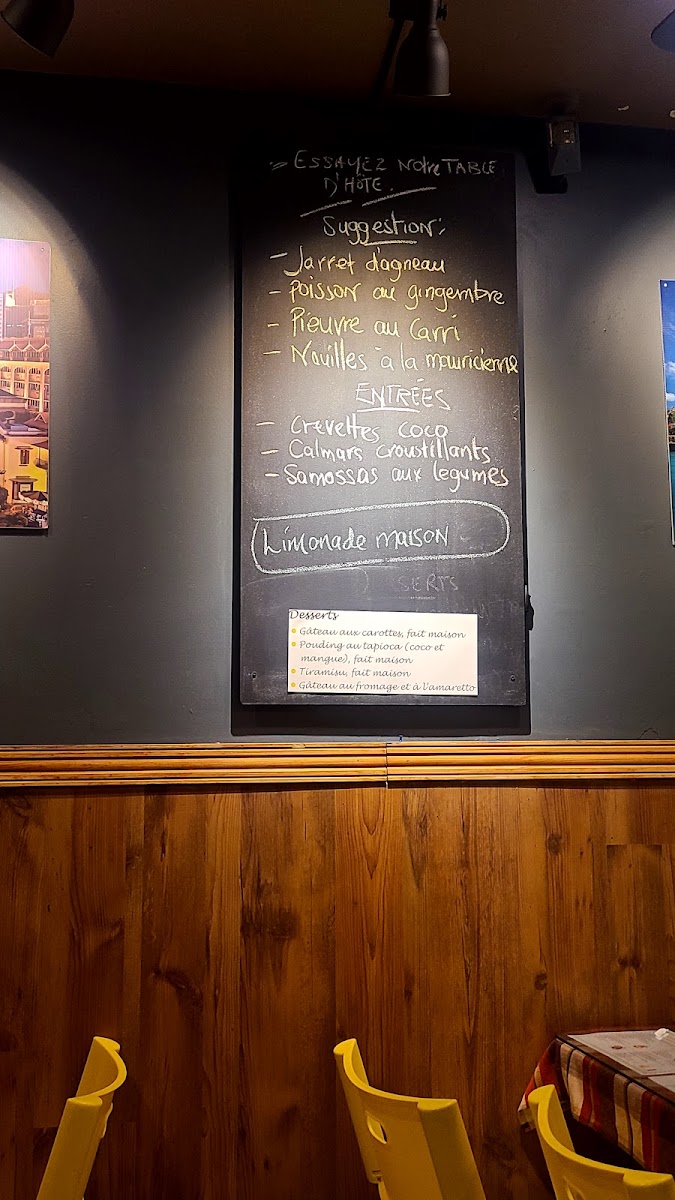 ESSAYEZ NOTRE TABLE
D'HÔTE.
Suggestion:
- Jarret d'agneau
- Poisson au gingembre
- Pieuvre au Carri
- Nouilles à la mauricienne
ENTRÉES
- Crevettes coco
- Calmars croustillants
- Samossas aux legumes
Limonade maison
SERTS
Desserts
• Gâteau aux carottes, fait maison
• Pouding au tapioca (coco et
mangue), fait maison
• Tiramisu, fait maison
• Gâteau au fromage et à l'amaretto